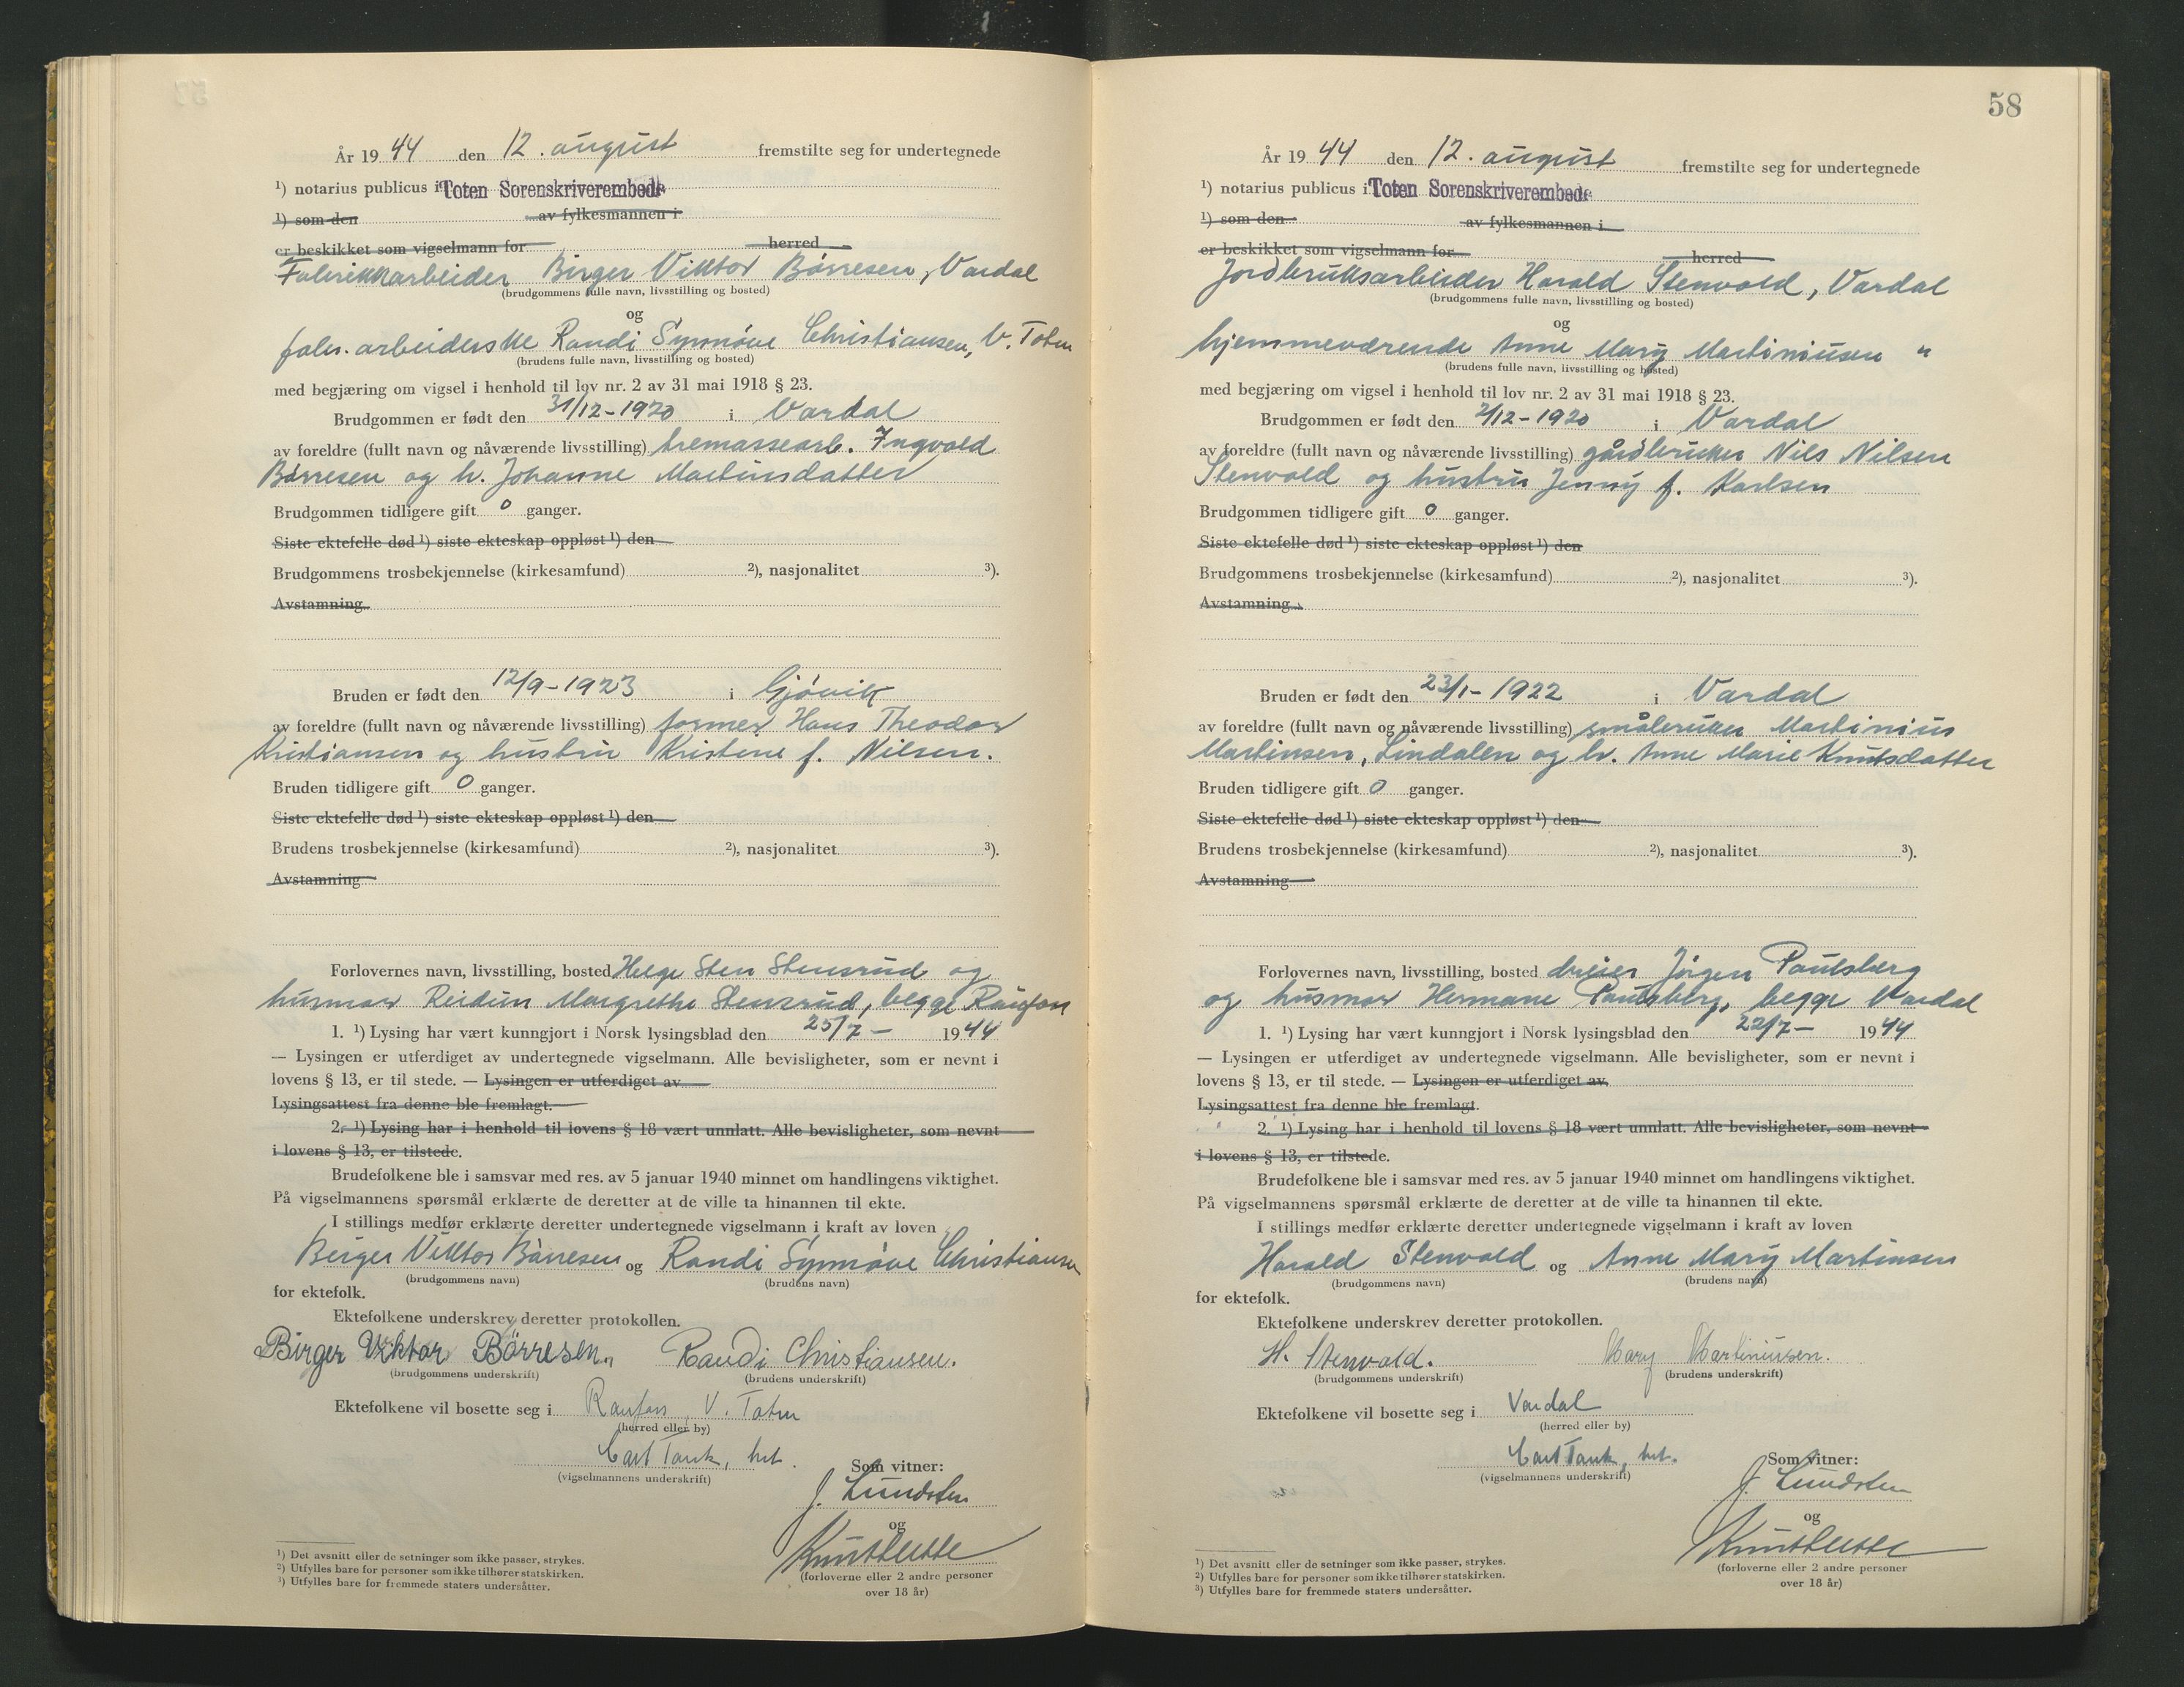 År 19 44 den 12. august fremstilte seg for undertegnede
¹) notarius publicus i Toten Sorenskriverembede
¹) som den av fylkesmannen i
er beskikket som vigselmann for herred
Fabrikkarbeider Birger Viktor Börresen, Vardal
(brudgommens fulle navn, livsstilling og bosted)
og
fabr. arbeiderske Randi Synnöve Christiansen, V. Toten
(brudens fulle navn, livsstilling og bosted)
med begjæring om vigsel i henhold til lov nr. 2 av 31 mai 1918 § 23.
Brudgommen er født den 31/12-1920 i Vardal
av foreldre (fullt navn og nåværende livsstilling) tremassearb. Ingvald
Börresen og h. Johanne Martinsdatter
Brudgommen tidligere gift 0 ganger.
Siste ektefelle død ¹) siste ekteskap oppløst ¹) den
Brudgommens trosbekjennelse (kirkesamfund) ²), nasjonalitet ³).
Avstamning
Bruden er født den 12/9-1923 i Gjövik
av foreldre (fullt navn og nåværende livsstilling) former Hans Theodor
Kristiansen og hustru Kristine f. Nilsen.
Bruden tidligere gift 0 ganger.
Siste ektefelle død ¹) siste ekteskap oppløst ¹) den
Brudens trosbekjennelse (kirkesamfund) ²), nasjonalitet ³).
Avstamning
Forlovernes navn, livsstilling, bosted Helge Sten Stensrud og
husmor Reidun Margrethe Stensrud, begge Raufoss
1. ¹) Lysing har vært kunngjort i Norsk lysingsblad den 25/7 - 1944
— Lysingen er utferdiget av undertegnede vigselmann. Alle bevisligheter, som er nevnt i
lovens § 13, er til stede. — Lysingen er utferdiget av
Lysingsattest fra denne ble fremlagt.
2. ¹) Lysing har i henhold til lovens § 18 vært unnlatt. Alle bevisligheter, som nevnt
i lovens § 13, er tilstede.
Brudefolkene ble i samsvar med res. av 5 januar 1940 minnet om handlingens viktighet.
På vigselmannens spørsmål erklærte de deretter at de ville ta hinannen til ekte.
I stillings medfør erklærte deretter undertegnede vigselmann i kraft av loven
Birger Viktor Börresen og Randi Synnöve Christiansen
(brudgommens navn) (brudens navn)
for ektefolk.
Ektefolkene underskrev deretter protokollen.
Birger Viktor Börresen. Randi Christiansen.
(brudgommens underskrift) (brudens underskrift)
Ektefolkene vil bosette seg i Raufoss, V. Toten
(herred eller by)
Carl Tank, bet.
(vigselmannens underskrift)
Som vitner:
J. Lundsten
og
(forloverne eller 2 andre personer
over 18 år)
¹) Det avsnitt eller de setninger som ikke passer, strykes.
²) Utfylles bare for personer som ikke tilhører statskirken.
³) Utfylles bare for fremmede staters undersåtter.
58
År 19 44 den 12. august fremstilte seg for undertegnede
¹) notarius publicus i Toten Sorenskriverembede
¹) som den av fylkesmannen i
er beskikket som vigselmann for herred
Jordbruksarbeider Harald Stenvold, Vardal
(brudgommens fulle navn, livsstilling og bosted)
og
hjemmeværende Anne Mary Martiniusen "
(brudens fulle navn, livsstilling og bosted)
med begjæring om vigsel i henhold til lov nr. 2 av 31 mai 1918 § 23.
Brudgommen er født den 2/12-1920 i Vardal
av foreldre (fullt navn og nåværende livsstilling) gårdbruker Nils Nilsen
Stenvold og hustru Jenny f. Karlsen
Brudgommen tidligere gift 0 ganger.
Siste ektefelle død ¹) siste ekteskap oppløst ¹) den
Brudgommens trosbekjennelse (kirkesamfund) ²), nasjonalitet ³).
Avstamning
Bruden er født den 23/1-1922 i Vardal
av foreldre (fullt navn og nåværende livsstilling) småbruker Martinius
Martinsen, Lindalen og h. Anne Marie Knutsdatter
Bruden tidligere gift 0 ganger.
Siste ektefelle død ¹) siste ekteskap oppløst ¹) den
Brudens trosbekjennelse (kirkesamfund) ²), nasjonalitet ³).
Avstamning
Forlovernes navn, livsstilling, bosted dreier Jörgen Paulsberg
og husmor Hermane Paulsberg, begge Vardal
1. ¹) Lysing har vært kunngjort i Norsk lysingsblad den 22/7 - 1944
— Lysingen er utferdiget av undertegnede vigselmann. Alle bevisligheter, som er nevnt i
lovens § 13, er til stede. — Lysingen er utferdiget av
Lysingsattest fra denne ble fremlagt.
2. ¹) Lysing har i henhold til lovens § 18 vært unnlatt. Alle bevisligheter, som nevnt
i lovens § 13, er tilstede.
Brudefolkene ble i samsvar med res. av 5 januar 1940 minnet om handlingens viktighet.
På vigselmannens spørsmål erklærte de deretter at de ville ta hinannen til ekte.
I stillings medfør erklærte deretter undertegnede vigselmann i kraft av loven
Harald Stenvold og Anne Mary Martinsen
(brudgommens navn) (brudens navn)
for ektefolk.
Ektefolkene underskrev deretter protokollen.
H. Stenvold. Mary Martiniusen.
(brudgommens underskrift) (brudens underskrift)
Ektefolkene vil bosette seg i Vardal
(herred eller by)
Carl Tank, bet.
(vigselmannens underskrift)
Som vitner:
J. Lundsten
og
(forloverne eller 2 andre personer
over 18 år)
¹) Det avsnitt eller de setninger som ikke passer, strykes.
²) Utfylles bare for personer som ikke tilhører statskirken.
³) Utfylles bare for fremmede staters undersåtter.